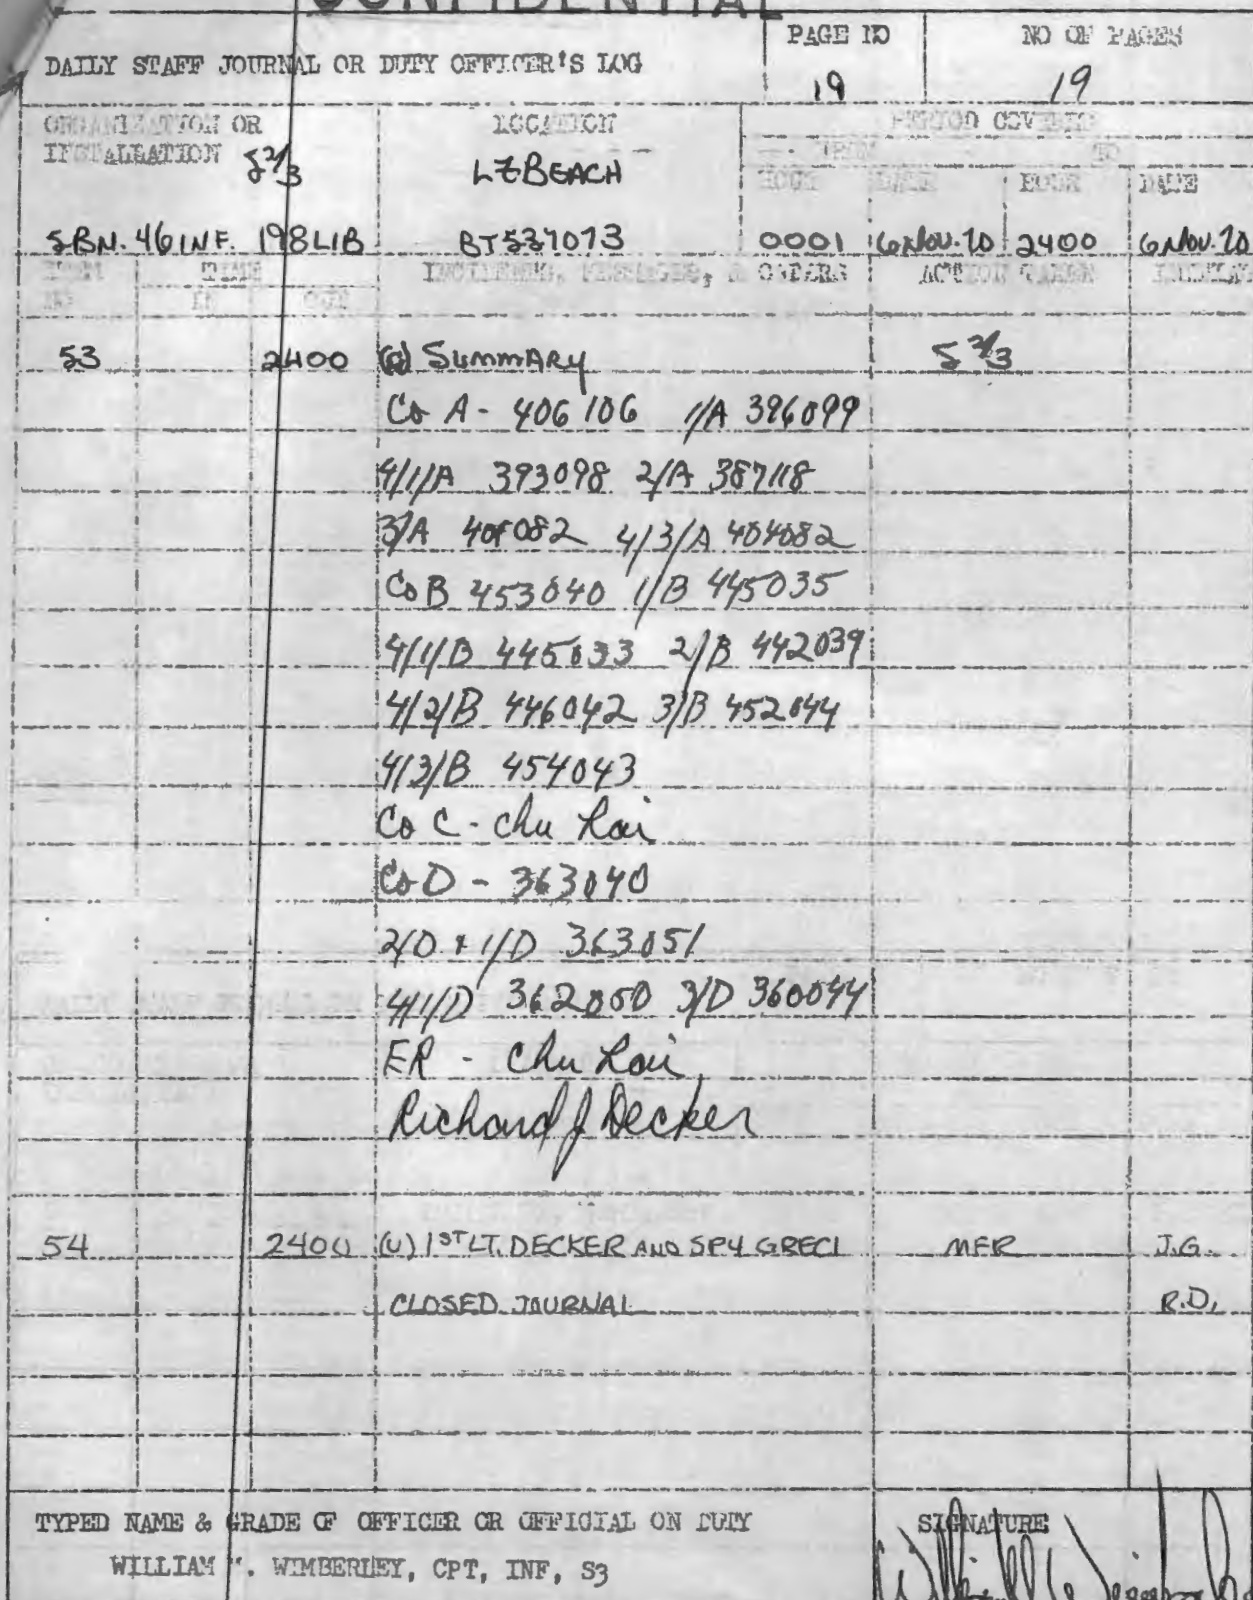 CONFIDENTIAL
DAILY STAFF JOURNAL OR DUTY OFFICER'S LOG
PAGE NO
19
NO OF PAGES
19
ORGANIZATION OR
INSTALLATION S2/3
5BN. 46INF. 198LIB
LOCATION
LZ BEACH
BT537073
PERIOD COVERED
FROM TO
HOUR DATE HOUR DATE
0001 6Nov.70 2400 6Nov.70
ITEM NO TIME INCIDENTS, MESSAGES, & ORDERS ACTION TAKEN INITIALS
IN OUT
53 2400 (C) SUMMARY S2/3
Co A - 406106 1/A 396099
4/1/A 393098 2/A 387118
3/A 404082 4/3/A 404082
Co B 453040 1/B 445035
4/1/B 445033 2/B 442039
4/2/B 446042 3/B 452044
4/3/B 454043
Co C - Chu Lai
Co D - 363040
2/D + 1/D 363051
4/1/D 362050 3/D 360044
ER - Chu Lai
Richard J Decker
54 2400 (U) 1ST LT. DECKER AND SP4 GRECI MFR J.G.
CLOSED JOURNAL R.D.
TYPED NAME & GRADE OF OFFICER OR OFFICIAL ON DUTY
WILLIAM . WIMBERLEY, CPT, INF, S3
SIGNATURE